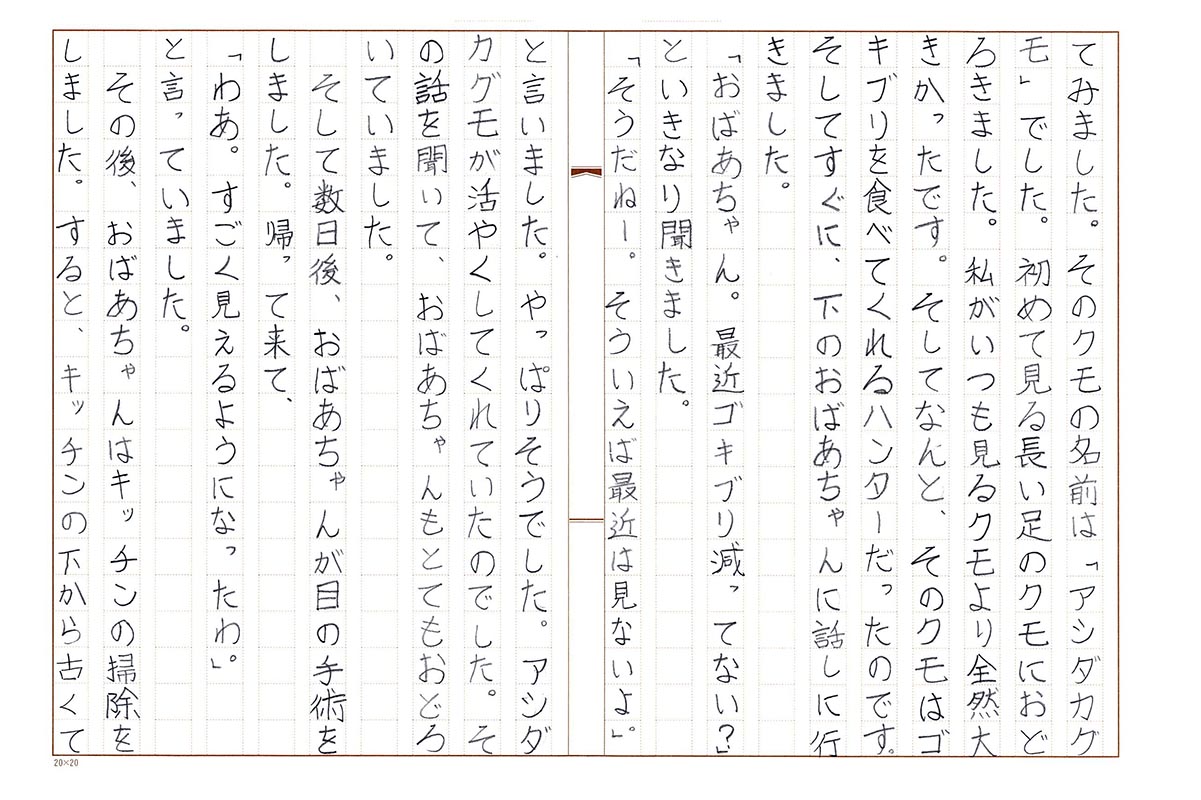 てみました。そのクモの名前は「アシダカグ
モ」でした。初めて見る長い足のクモにおど
ろきました。私がいつも見るクモより全然大
きかったです。そしてなんと、そのクモはゴ
キブリを食べてくれるハンターだったのです。
そしてすぐに、下のおばあちゃんに話しに行
きました。
「おばあちゃん。最近ゴキブリ減ってない？」
といきなり聞きました。
「そうだねー。そういえば最近は見ないよ」。
と言いました。やっぱりそうでした。アシダ
カグモが活やくしてくれていたのでした。そ
の話を聞いて、おばあちゃんもとてもおどろ
いていました。
そして数日後、おばあちゃんが目の手術を
しました。帰って来て、
「わあ。すごく見えるようになったわ」。
と言っていました。
その後、おばあちゃんはキッチンの掃除を
しました。すると、キッチンの下から古くて
20×20